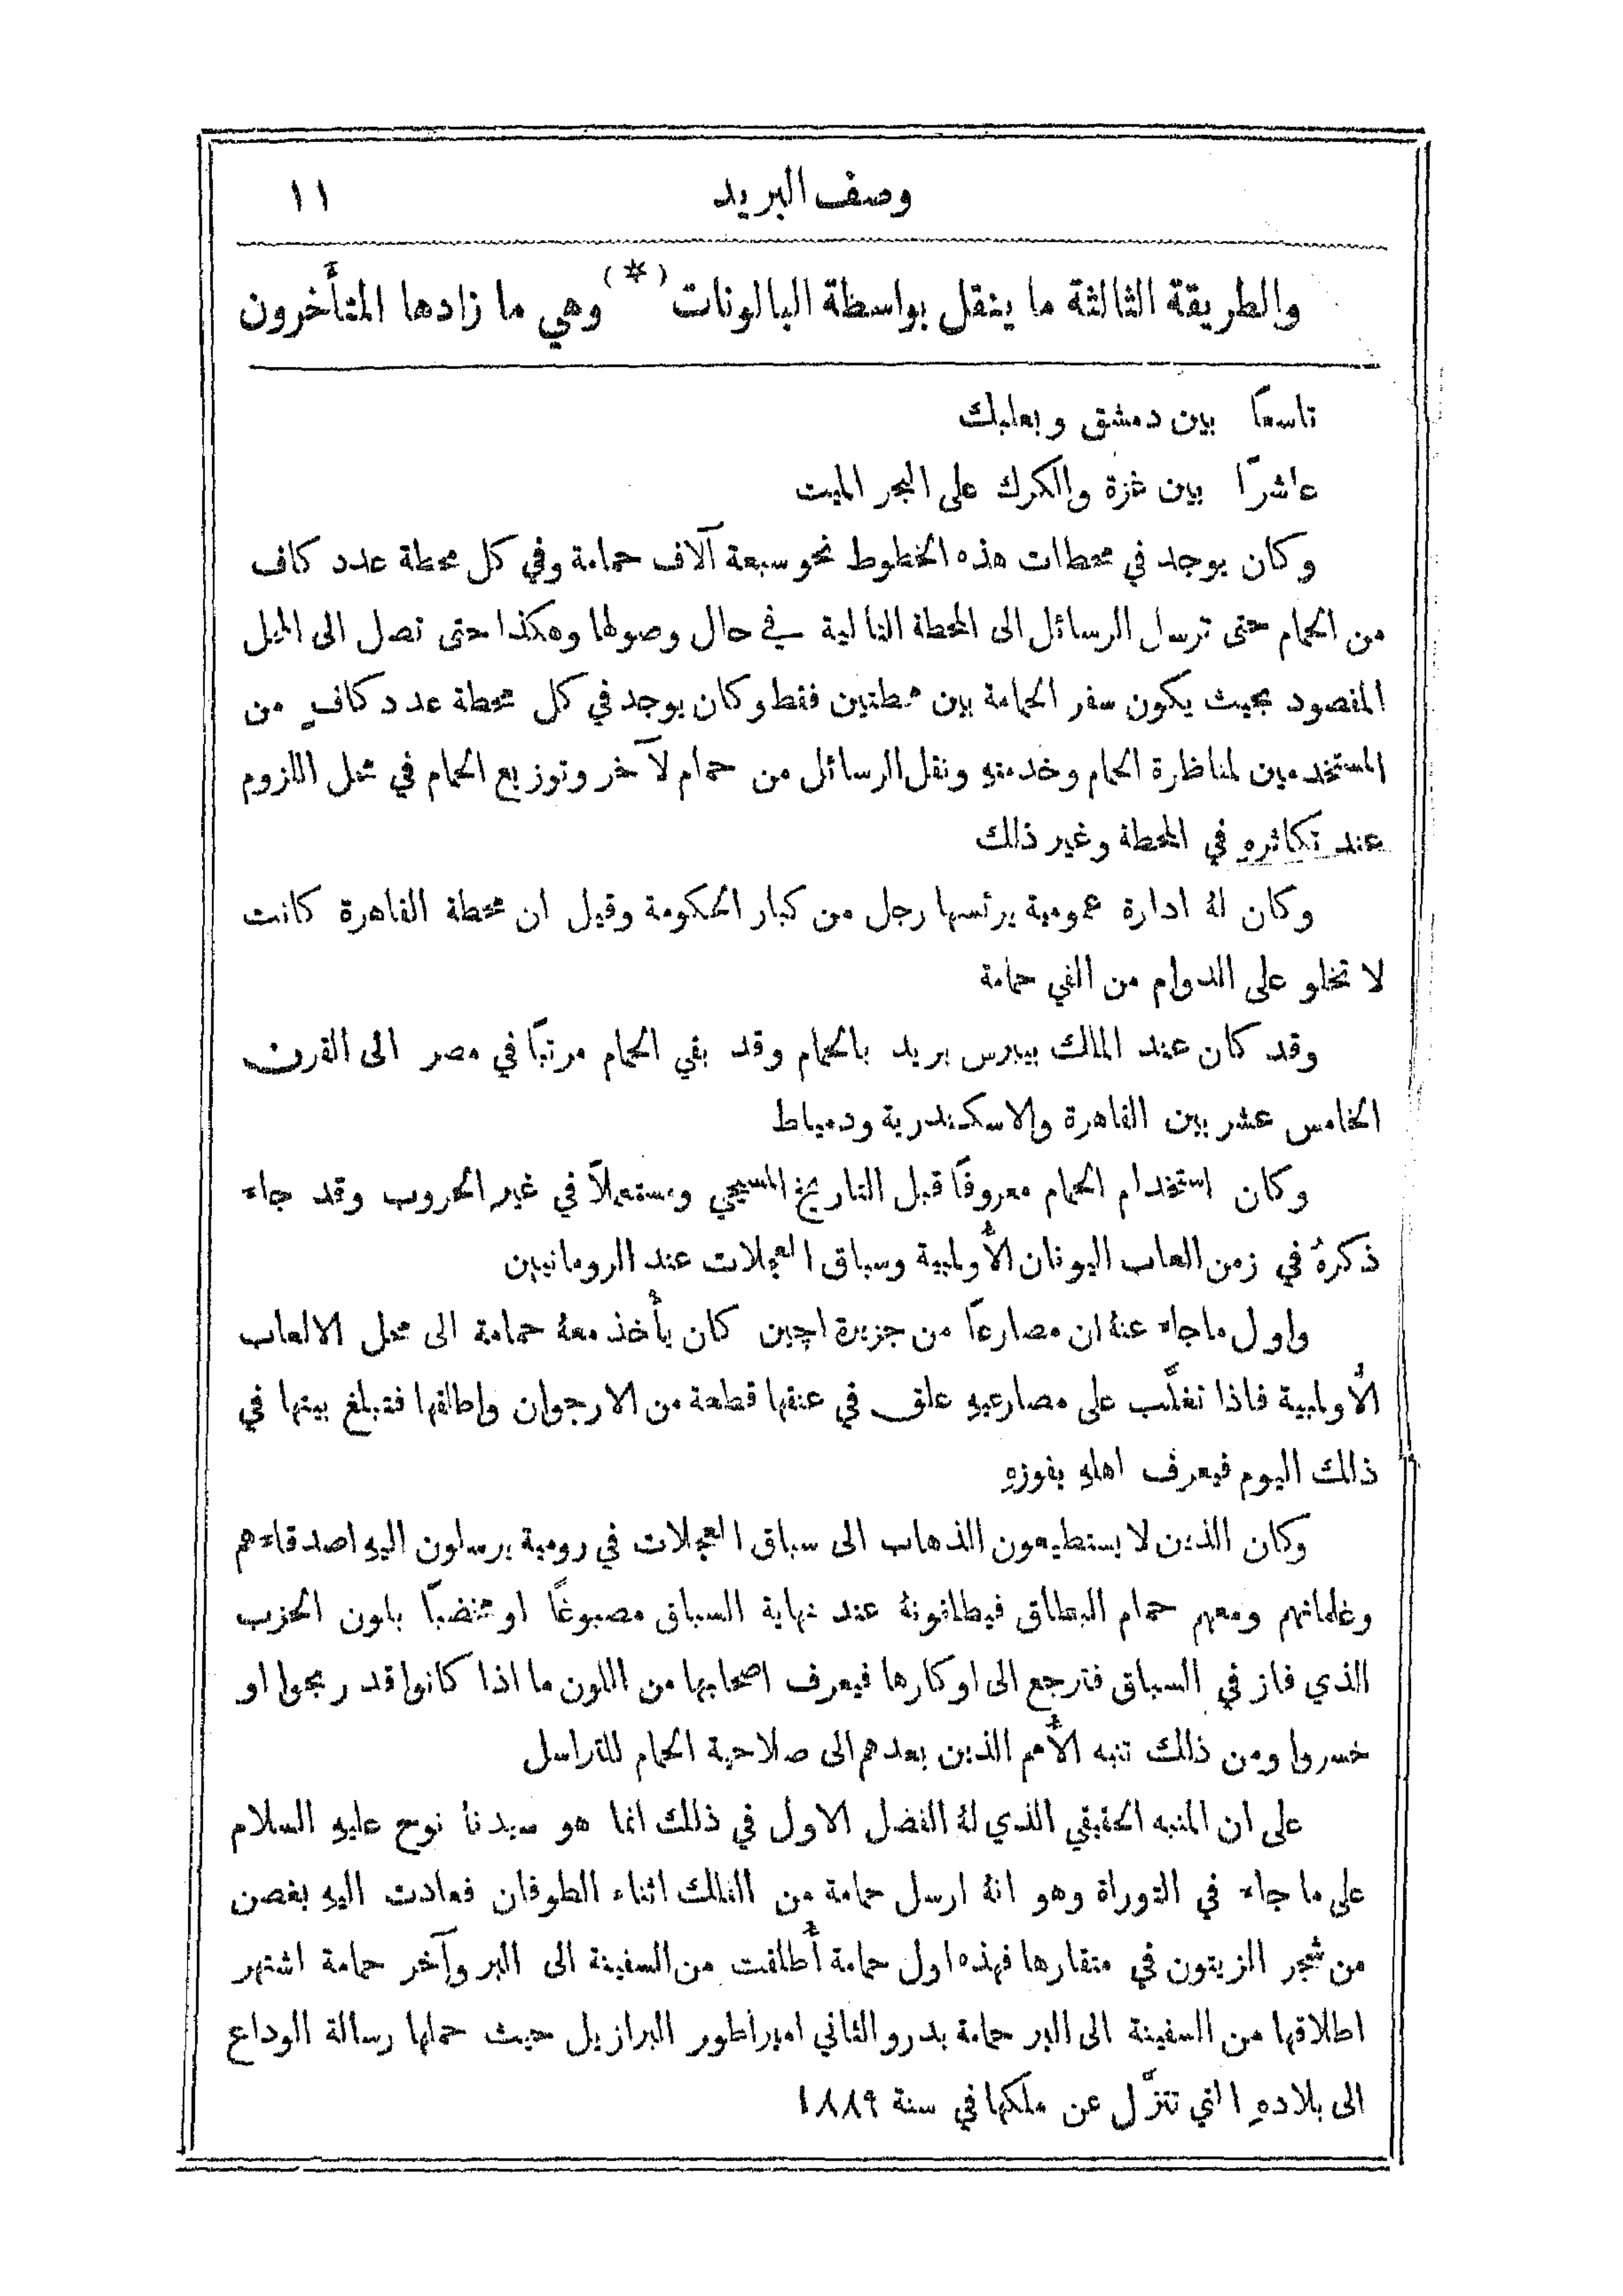 وصف البريد ١١
والطريقة الثالثة ما ينقل بواسطة البالونات (*) وهي ما زادها المتأخرون
تاسعًا بين دمشق وبعلبك
عاشرًا بين غزة والكرك على البحر الميت
وكان يوجد في محطات هذه الخطوط نحو سبعة آلاف حمامة وفي كل محطة عدد كاف
من الحمام حتى ترسل الرسائل الى المحطة التالية في حال وصولها وهكذا حتى تصل الى المحل
المقصود بحيث يكون سفر الحمامة بين محطتين فقط وكان يوجد في كل محطة عدد كافٍ من
المستخدمين لمناظرة الحمام وخدمتهِ ونقل الرسائل من حمام لآخر وتوزيع الحمام في محل اللزوم
عند تكاثرهِ في المحطة وغير ذلك
وكان لهُ ادارة عمومية يرئسها رجل من كبار الحكومة وقيل ان محطة القاهرة كانت
لا تخلو على الدوام من الفي حمامة
وقد كان عند الملك بيبرس بريد بالحمام وقد بقي الحمام مرتبًا في مصر الى القرن
الخامس عشر بين القاهرة والاسكندرية ودمياط
وكان استخدام الحمام معروفًا قبل التاريخ المسيحي ومستعملاً في غير الحروب وقد جاء
ذكرهُ في زمن العاب اليونان الأولمبية وسباق العجلات عند الرومانيين
واول ما جاء عنهُ ان مصارعًا من جزيرة اجين كان يأخذ معهُ حمامة الى محل الالعاب
الأولمبية فاذا تغلَّب على مصارعيهِ علق في عنقها قطعة من الارجوان واطلقها فتبلغ بيتها في
ذلك اليوم فيعرف اهلهِ بفوزهِ
وكان الذين لا يستطيعون الذهاب الى سباق العجلات في رومية يرسلون اليهِ اصدقاءهم
وغلمانهم ومعهم حمام البطاق فيطلقونهُ عند نهاية السباق مصبوغًا او مخضبًا بلون الحزب
الذي فاز في السباق فترجع الى اوكارها فيعرف اصحابها من اللون ما اذا كانوا قد ربحوا او
خسروا ومن ذلك تنبه الأمم الذين بعدهم الى صلاحية الحمام للتراسل
على ان المنبه الحقيقي الذي لهُ الفضل الاول في ذلك انما هو سيدنا نوح عليهِ السلام
على ما جاء في التوراة وهو انهُ ارسل حمامة من الفلك اثناء الطوفان فعادت اليهِ بغصن
من شجر الزيتون في منقارها فهذه اول حمامة أطلقت من السفينة الى البر وآخر حمامة اشتهر
اطلاقها من السفينة الى البر حمامة بدرو الثاني امبراطور البرازيل حيث حملها رسالة الوداع
الى بلادهِ التي تنزَّل عن ملكها في سنة ١٨٨٩